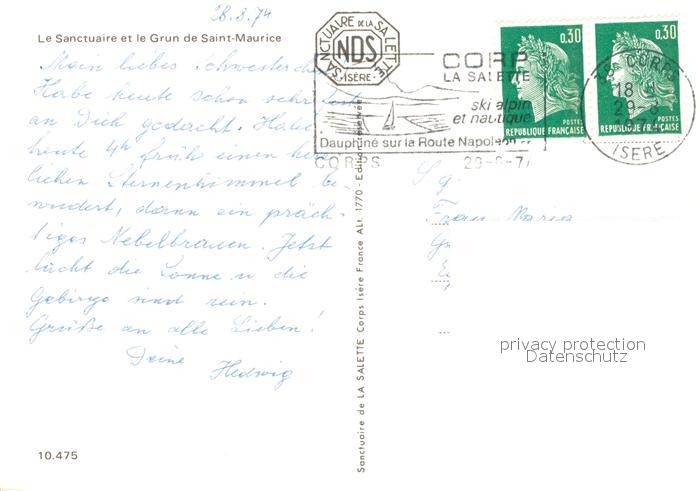 28.8.74
Le Sanctuaire et le Grun de Saint-Maurice
Mein liebes Schwesterchen
Habe heute schon sehr fest
an Dich gedacht. Habe
heute 4h früh einen herr
lichen Sternenhimmel be-
wundert, dann ein präch-
tiges Nebelbrauen. Jetzt
lacht die Sonne u die
Gebirge sind rein.
Grüße an alle Lieben!
Deine
Hedwig
10.475
Sanctuaire de LA SALETTE Corps Isère France Alt. 1770 - Edition réservée
SANCTUAIRE DE LA SALETTE
NDS
ISÈRE
CORP
LA SALETTE
ski alpin
et nautique
Dauphiné sur la Route Napoléon
CORPS 29-8-7
0,30
POSTES
REPUBLIQUE FRANÇAISE
0,30
POSTES
REPUBLIQUE FRANÇAISE
CORPS
18 H
29-8
1974
ISERE
Sg.
Frau Maria
privacy protection
Datenschutz